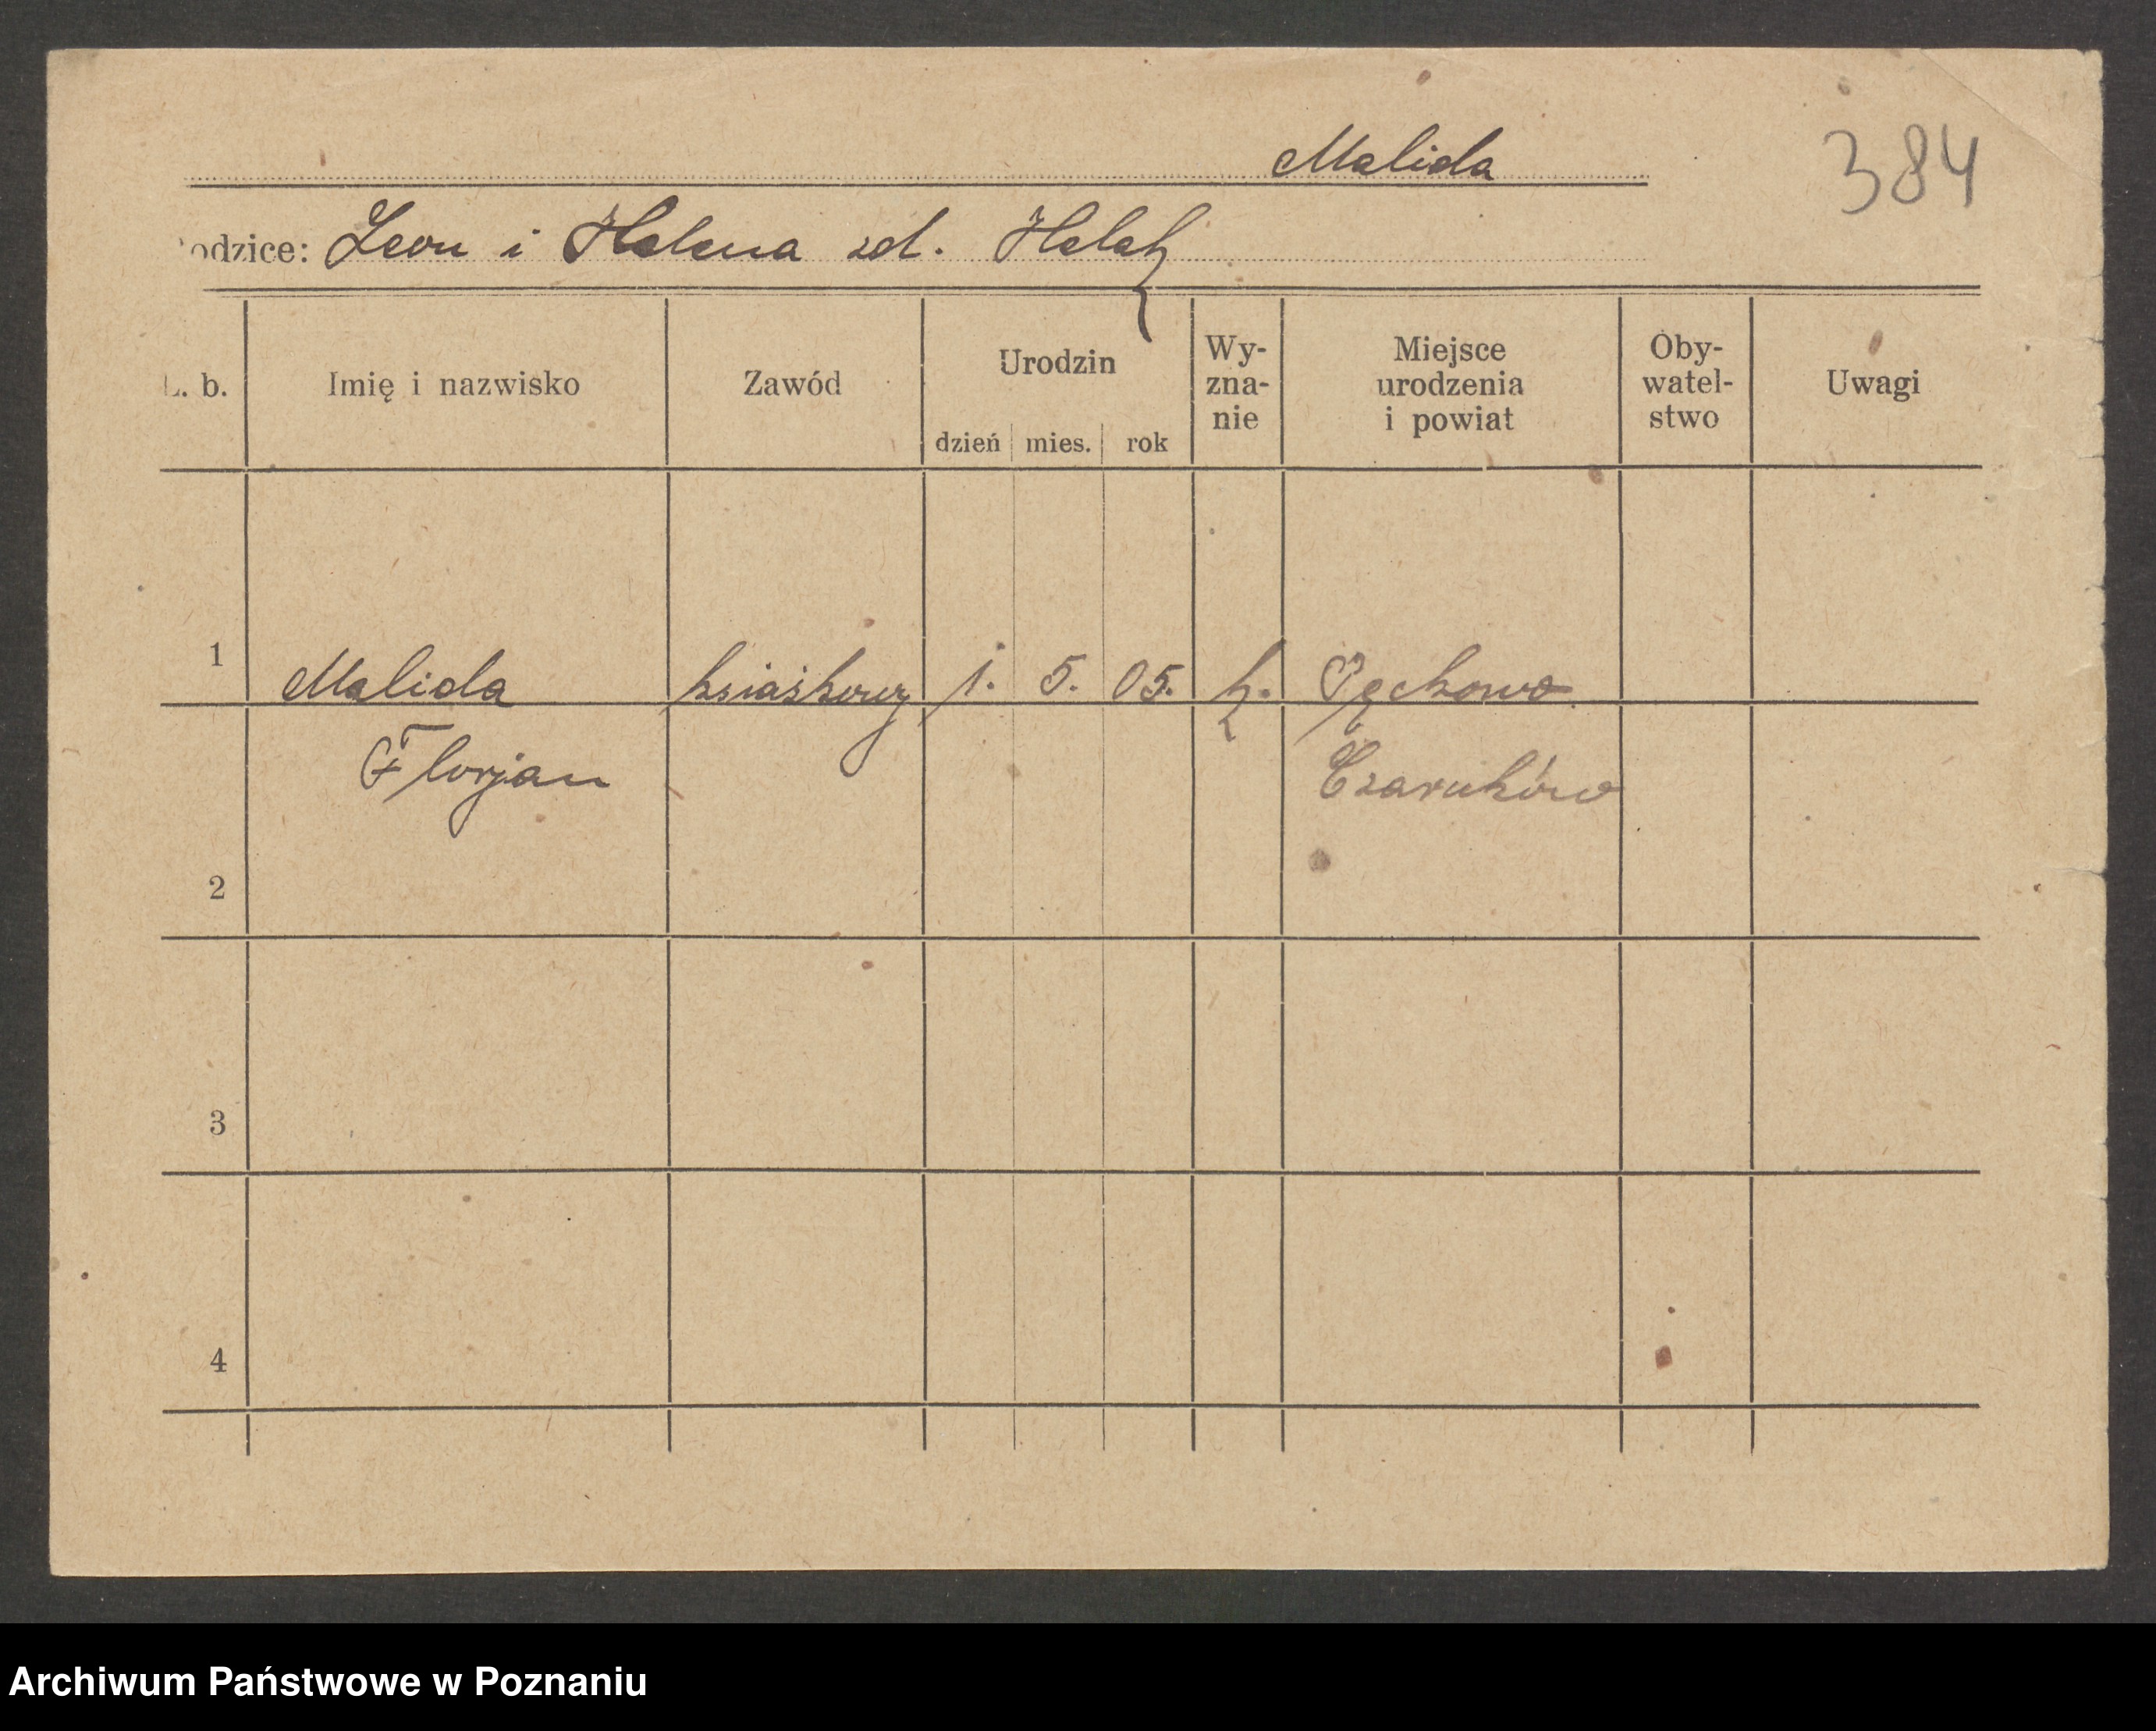 Malida
384
odzice: Leon i Helena zd. Helak
L. b.
Imię i nazwisko
Zawód
Urodzin
dzień mies. rok
Wy-
zna-
nie
Miejsce
urodzenia
i powiat
Oby-
watel-
stwo
Uwagi
1 Malida książkowy 1. 5. 05. k. Pęckowo
Florjan Czarnków
2
3
4
Archiwum Państwowe w Poznaniu